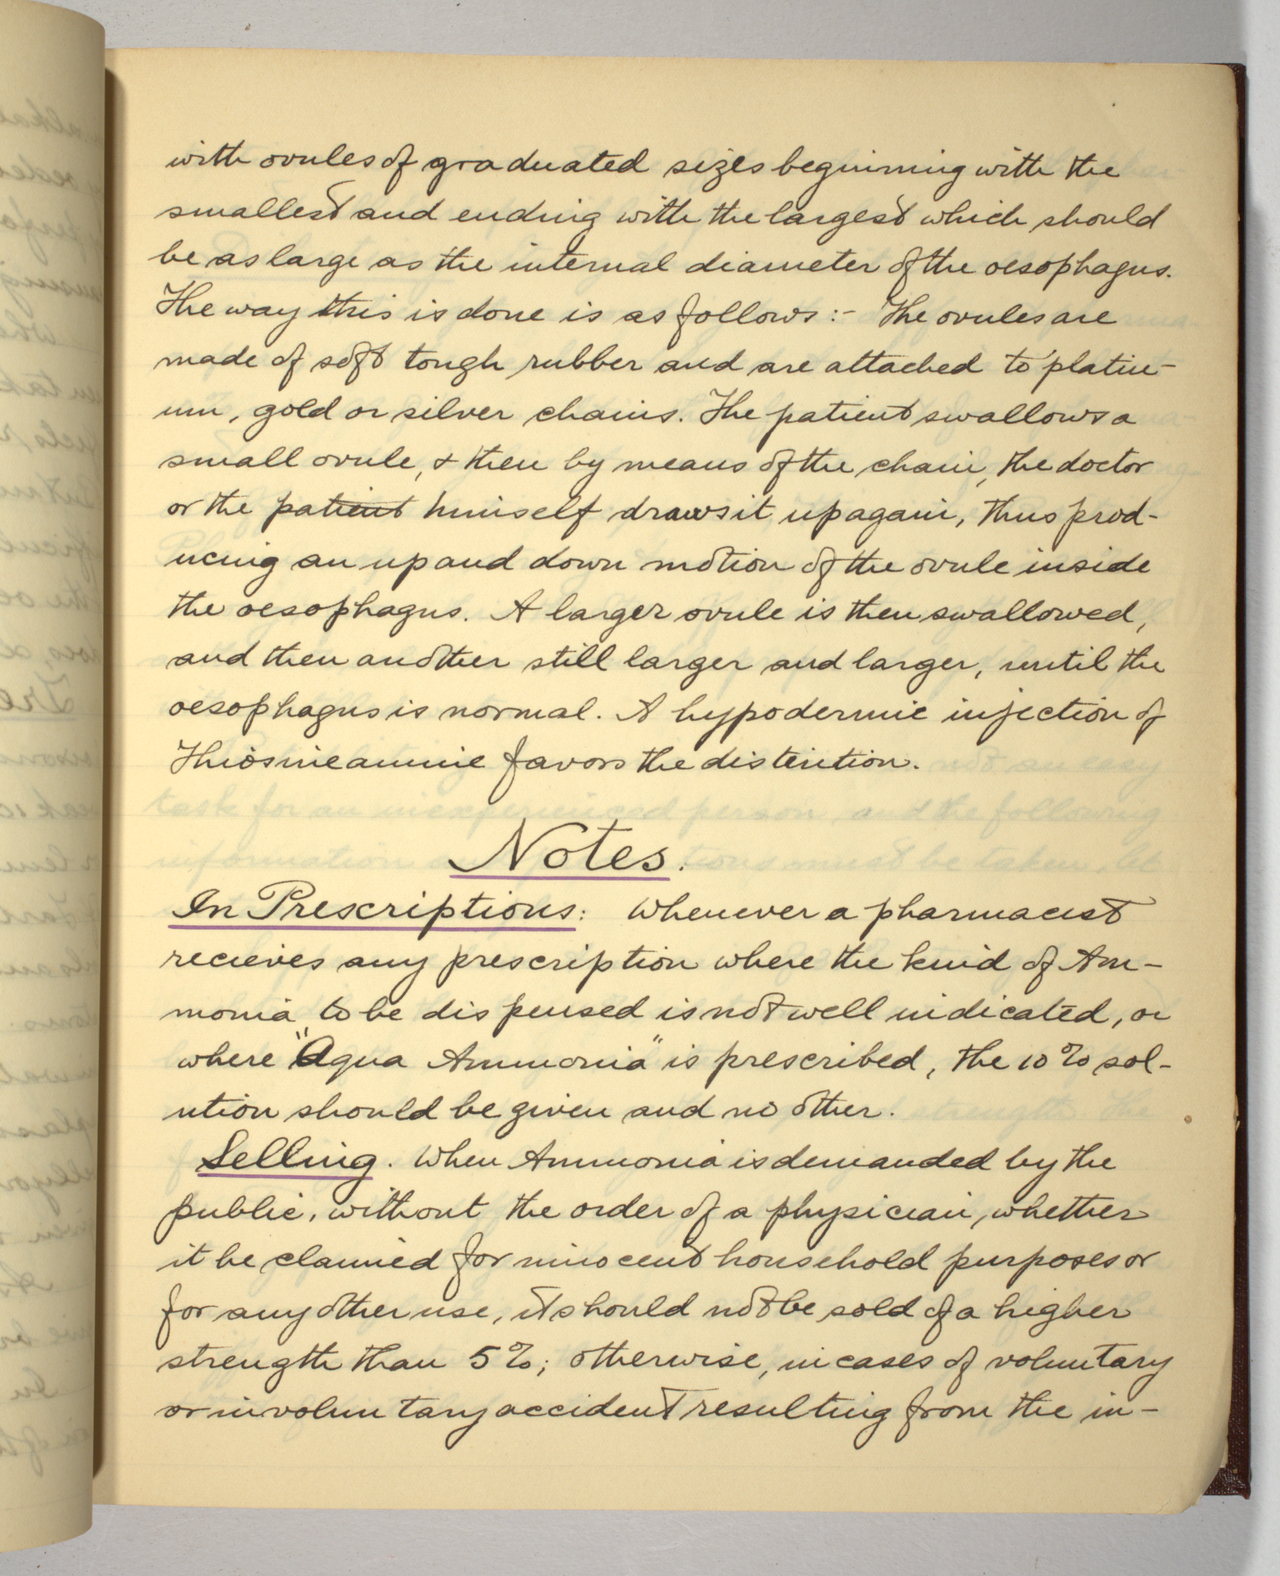 with ovules of graduated sizes beginning with the
smallest and ending with the largest which should
be as large as the internal diameter of the oesophagus.
The way this is done is as follows:- The ovules are
made of soft tough rubber and are attached to platin-
um, gold or silver chains. The patient swallows a
small ovule, & then by means of the chain, the doctor
or the patient himself draws it up again, thus prod-
ucing an up and down motion of the ovule inside
the oesophagus. A larger ovule is then swallowed,
and then another still larger and larger, until the
oesophagus is normal. A hypodermic injection of
Thiosineamine favors the distention.
Notes.
In Prescriptions: Whenever a pharmacist
recieves any prescription where the kind of Am-
monia to be dispensed is not well indicated, or
where "Aqua Ammonia" is prescribed, the 10% sol-
ution should be given and no other.
Selling. When Ammonia is demanded by the
public, without the order of a physician, whether
it be claimed for innocent household purposes or
for any other use, it should not be sold of a higher
strength than 5%; otherwise, in cases of voluntary
or involuntary accident resulting from the in-